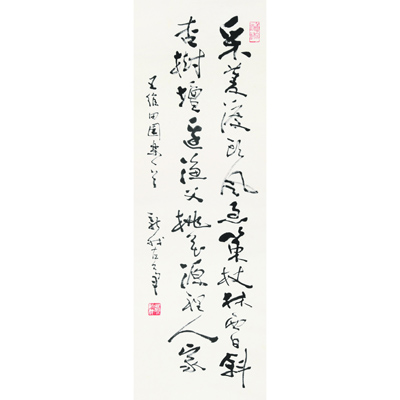 采菱渡頭風急策杖林西日斜
杏樹壇邊漁父桃花源裡人家
王維田園樂